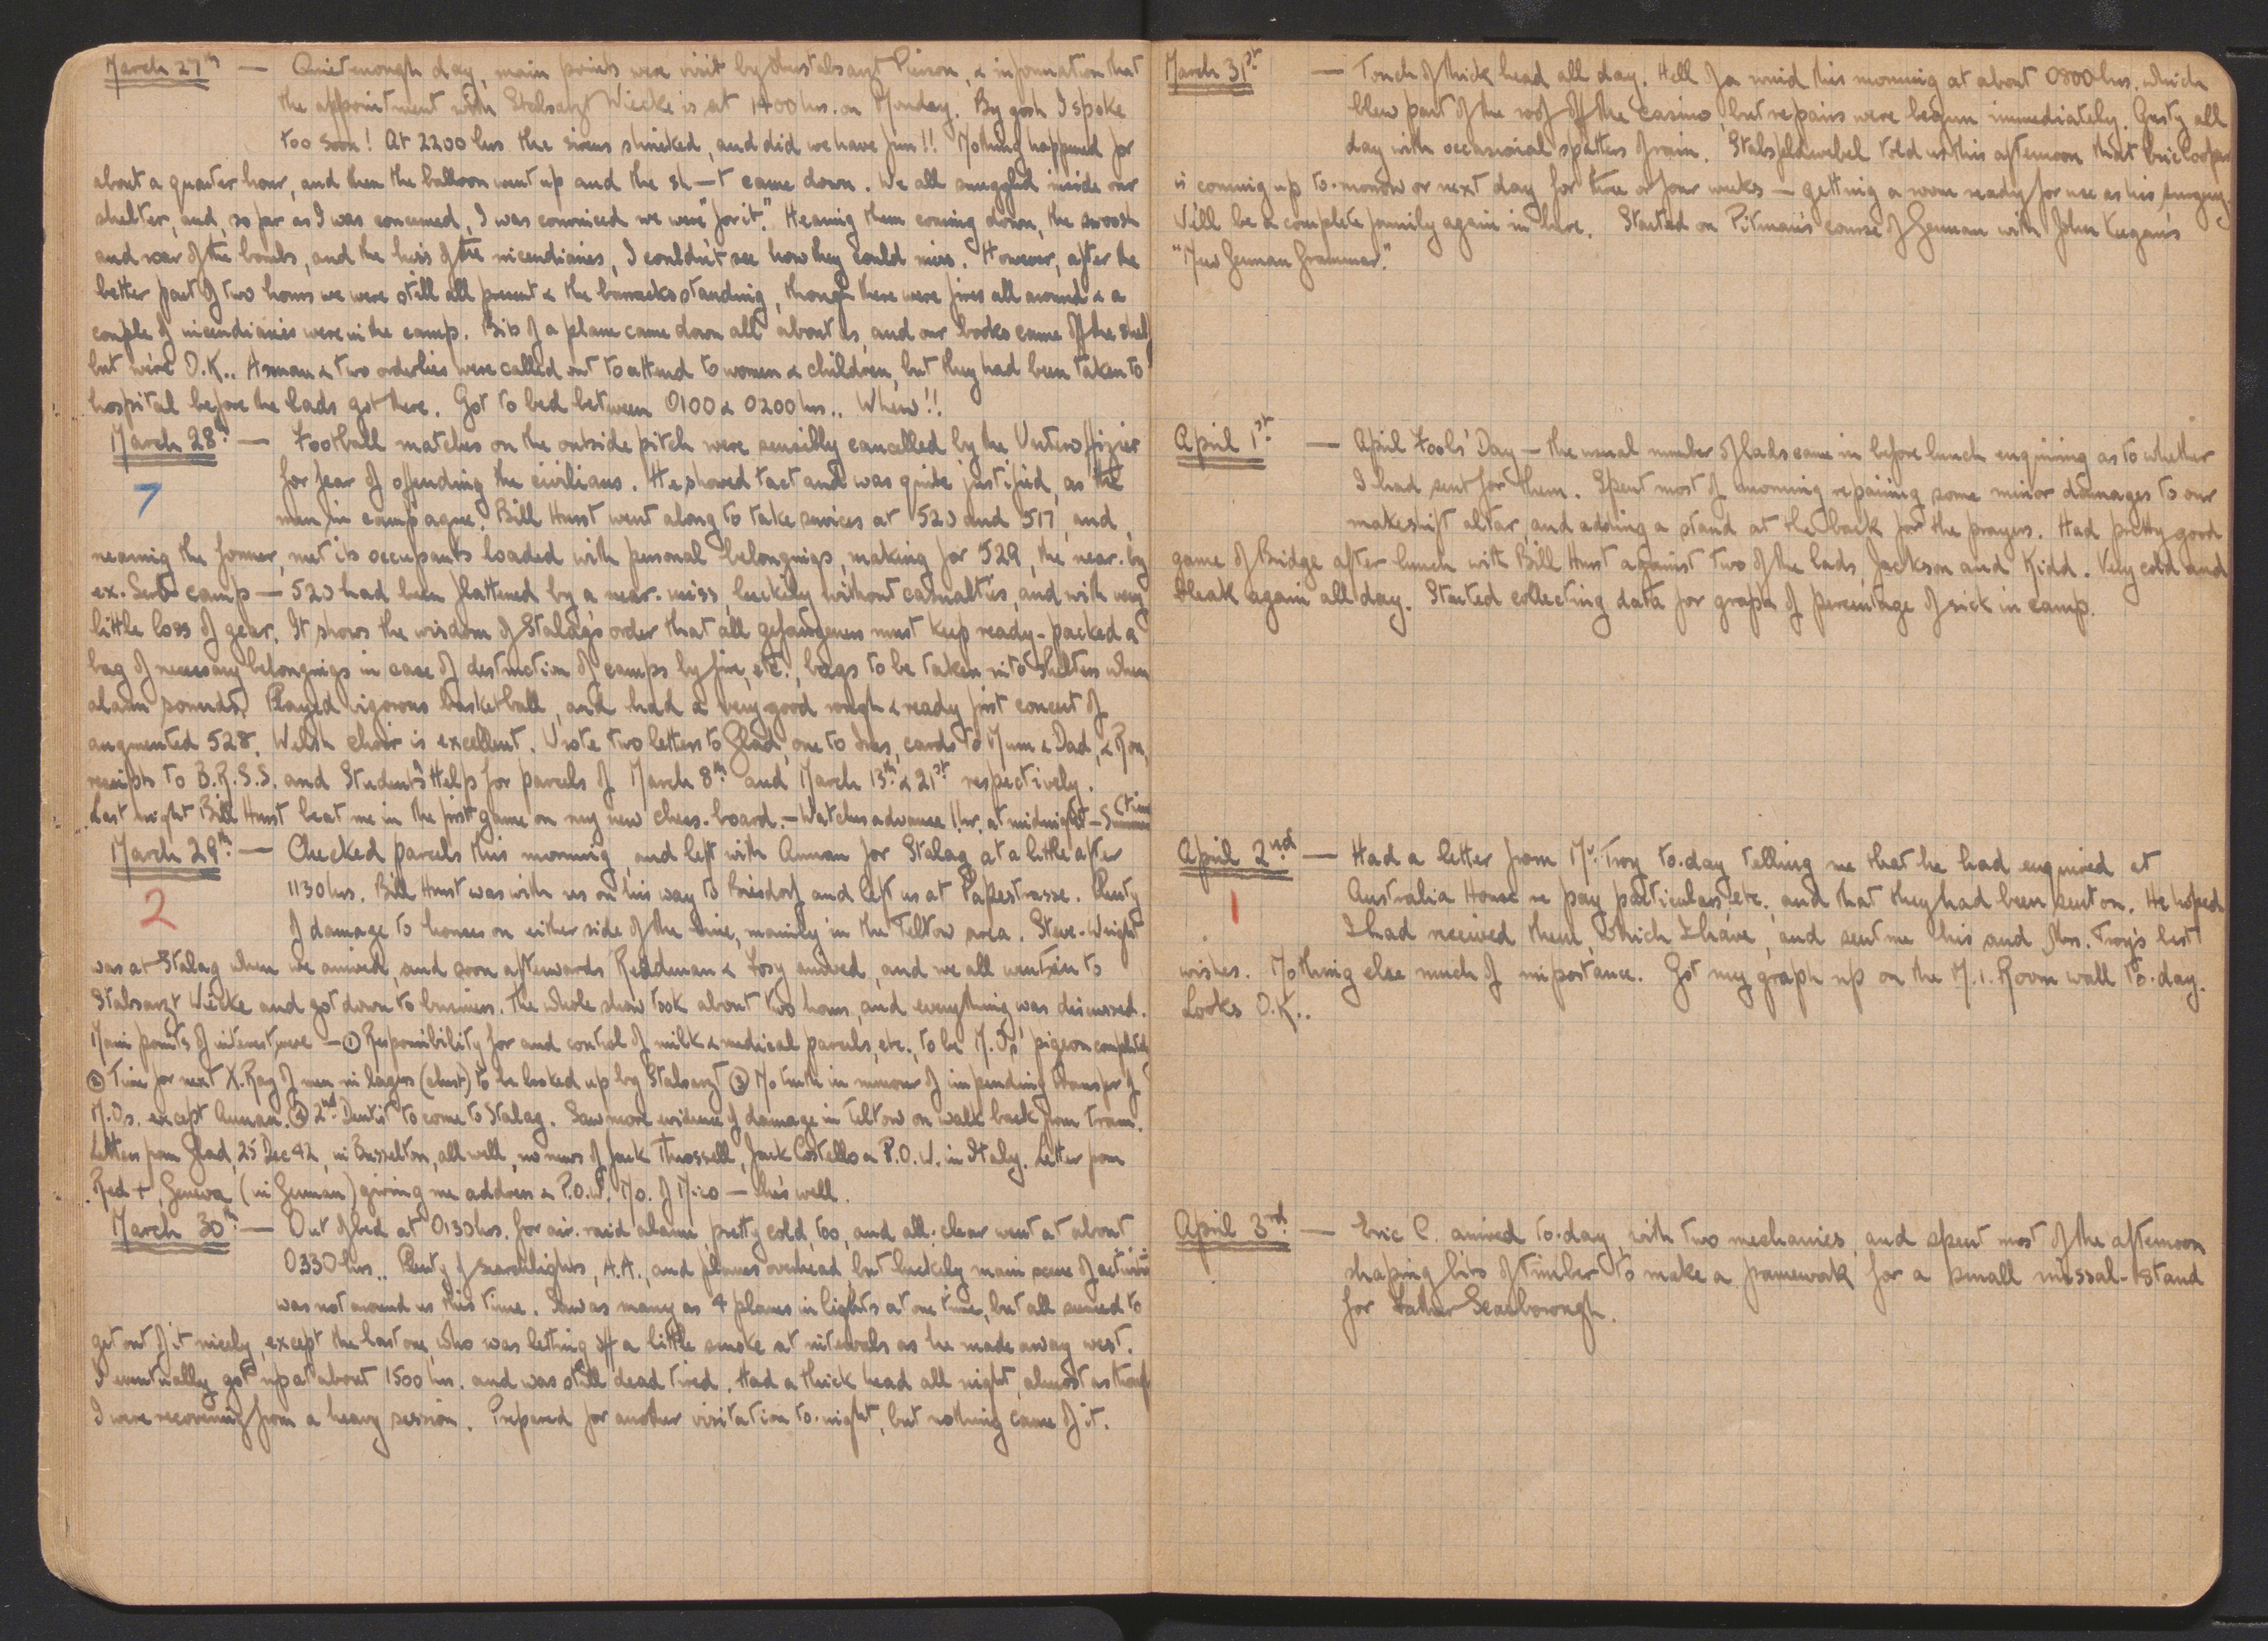 March 27th — Quiet enough day, main points were visit by Oberstabsarzt Pierson, & information that
the appointment with Stabsarzt Wiecke is at 1400 hrs. on Monday. By gosh I spoke
too soon! At 2200 hrs the sirens shrieked, and did we have fun!! Nothing happened for
about a quarter hour, and then the balloon went up and the sh—t came down. We all snuggled inside our
shelter, and, so far as I was concerned, I was convinced we were "for it." Hearing them coming down, the swoosh
and roar of the bombs, and the hiss of the incendiaries, I couldn't see how they could miss. However, after the
better part of two hours we were still all present & the barracks standing, though there were fires all around & a
couple of incendiaries were in the camp. Bits of a plane came down all about us, and our books came off the shelf
but we're O.K.. Annan & two orderlies were called out to attend to women & children, but they had been taken to
hospital before the lads got there. Got to bed between 0100 & 0200 hrs.. Whew!!
March 28th — Football matches on the outside pitch were sensibly cancelled by the Unteroffizier
7 for fear of offending the civilians. He showed tact and was quite justified, as the
men in camp agree. Bill Hurst went along to take services at 520 and 517, and,
nearing the former, met its occupants loaded with personal belongings, making for 529, the near-by
ex-Serb camp — 520 had been flattened by a near-miss, luckily without casualties, and with very
little loss of gear. It shows the wisdom of Stalag's order that all gefangenen must keep ready-packed a
bag of necessary belongings in case of destruction of camps by fire, etc., bags to be taken into shelters when
alarm sounds. Played vigorous basketball, and had a very good rough & ready first concert of
augmented 528. Welsh choir is excellent. Wrote two letters to Glad, one to , cards to Mum & Dad, & Ron,
receipts to B.R.S.S. and Students' Help for parcels of March 8th and March 13th & 21st respectively.
Last night Bill Hurst beat me in the first game on my new chess-board. — Watches advance 1 hr. at midnight — Summer time
March 29th — Checked parcels this morning, and left with Annan for Stalag at a little after
2 1130 hrs. Bill Hurst was with us on his way to Briesdorf and left us at Papestrasse. Plenty
of damage to houses on either side of the line, mainly in the Teltow area. Steve-Wright
was at Stalag when we arrived, and soon afterwards Reddman & Foxy arrived, and we all went in to
Stabsarzt Wiecke and got down to business. The whole show took about two hours, and everything was discussed.
Main points of interest were — ① Responsibility for and control of milk & medical parcels, etc., to be M.O's pigeon completely
② Time for next X-Ray of men in lagers (chest) to be looked up by Stabsarzt ③ No truth in rumour of impending transfer of
M.Os. except Annan. ④ 2nd Dentist to come to Stalag. Saw more evidence of damage in Teltow on walk back from tram.
Letters from Glad, 25 Dec 42, in Busselton, all well, no news of Jack Throssell, Jack Costello a P.O.W. in Italy. Letter from
Red +, Geneva (in German) giving me address & P.O.W. No. of Mico — he's well.
March 30th — Out of bed at 0130 hrs. for air-raid alarm, pretty cold, too, and all-clear went at about
0330 hrs.. Plenty of searchlights, A.A., and planes overhead, but luckily main scene of activity
was not around us this time. Saw as many as 4 planes in lights at one time, but all seemed to
get out of it nicely, except the last one, who was letting off a little smoke at intervals as he made away west.
I eventually got up at about 1500 hrs. and was still dead tired. Had a thick head all night, almost as though
I were recovering from a heavy session. Prepared for another visitation to-night, but nothing came of it.
March 31st — Touch of thick head all day. Hell of a wind this morning at about 0800 hrs. which
blew part of the roof off the casino, but repairs were begun immediately. Gusty all
day with occasional spatters of rain. Stabsfeldwebel told us this afternoon that Eric Cooper
is coming up to-morrow or next day for three or four weeks — getting a room ready for use as his surgery.
We'll be a complete family again in here. Started on Pitman's course of German with John Keegan's
"New German Grammar."
April 1st — April Fools' Day — the usual number of lads came in before lunch enquiring as to whether
I had sent for them. Spent most of morning repairing some minor damages to our
makeshift altar, and adding a stand at the back for the prayers. Had pretty good
game of Bridge after lunch with Bill Hurst against two of the lads, Jackson and Kidd. Very cold and
bleak again all day. Started collecting data for graph of percentage of sick in camp.
April 2nd — Had a letter from Mr. Troy to-day telling me that he had enquired at
1 Australia House re pay particulars etc., and that they had been sent on. He hoped
I had received them, which I have, and sent me his and Mrs. Troy's best
wishes. Nothing else much of importance. Got my graph up on the M.I. Room wall to-day.
Looks O.K..
April 3rd — Eric C. arrived to-day, with two mechanics, and spent most of the afternoon
shaping bits of timber to make a framework for a small missal-stand
for Father Scarborough.